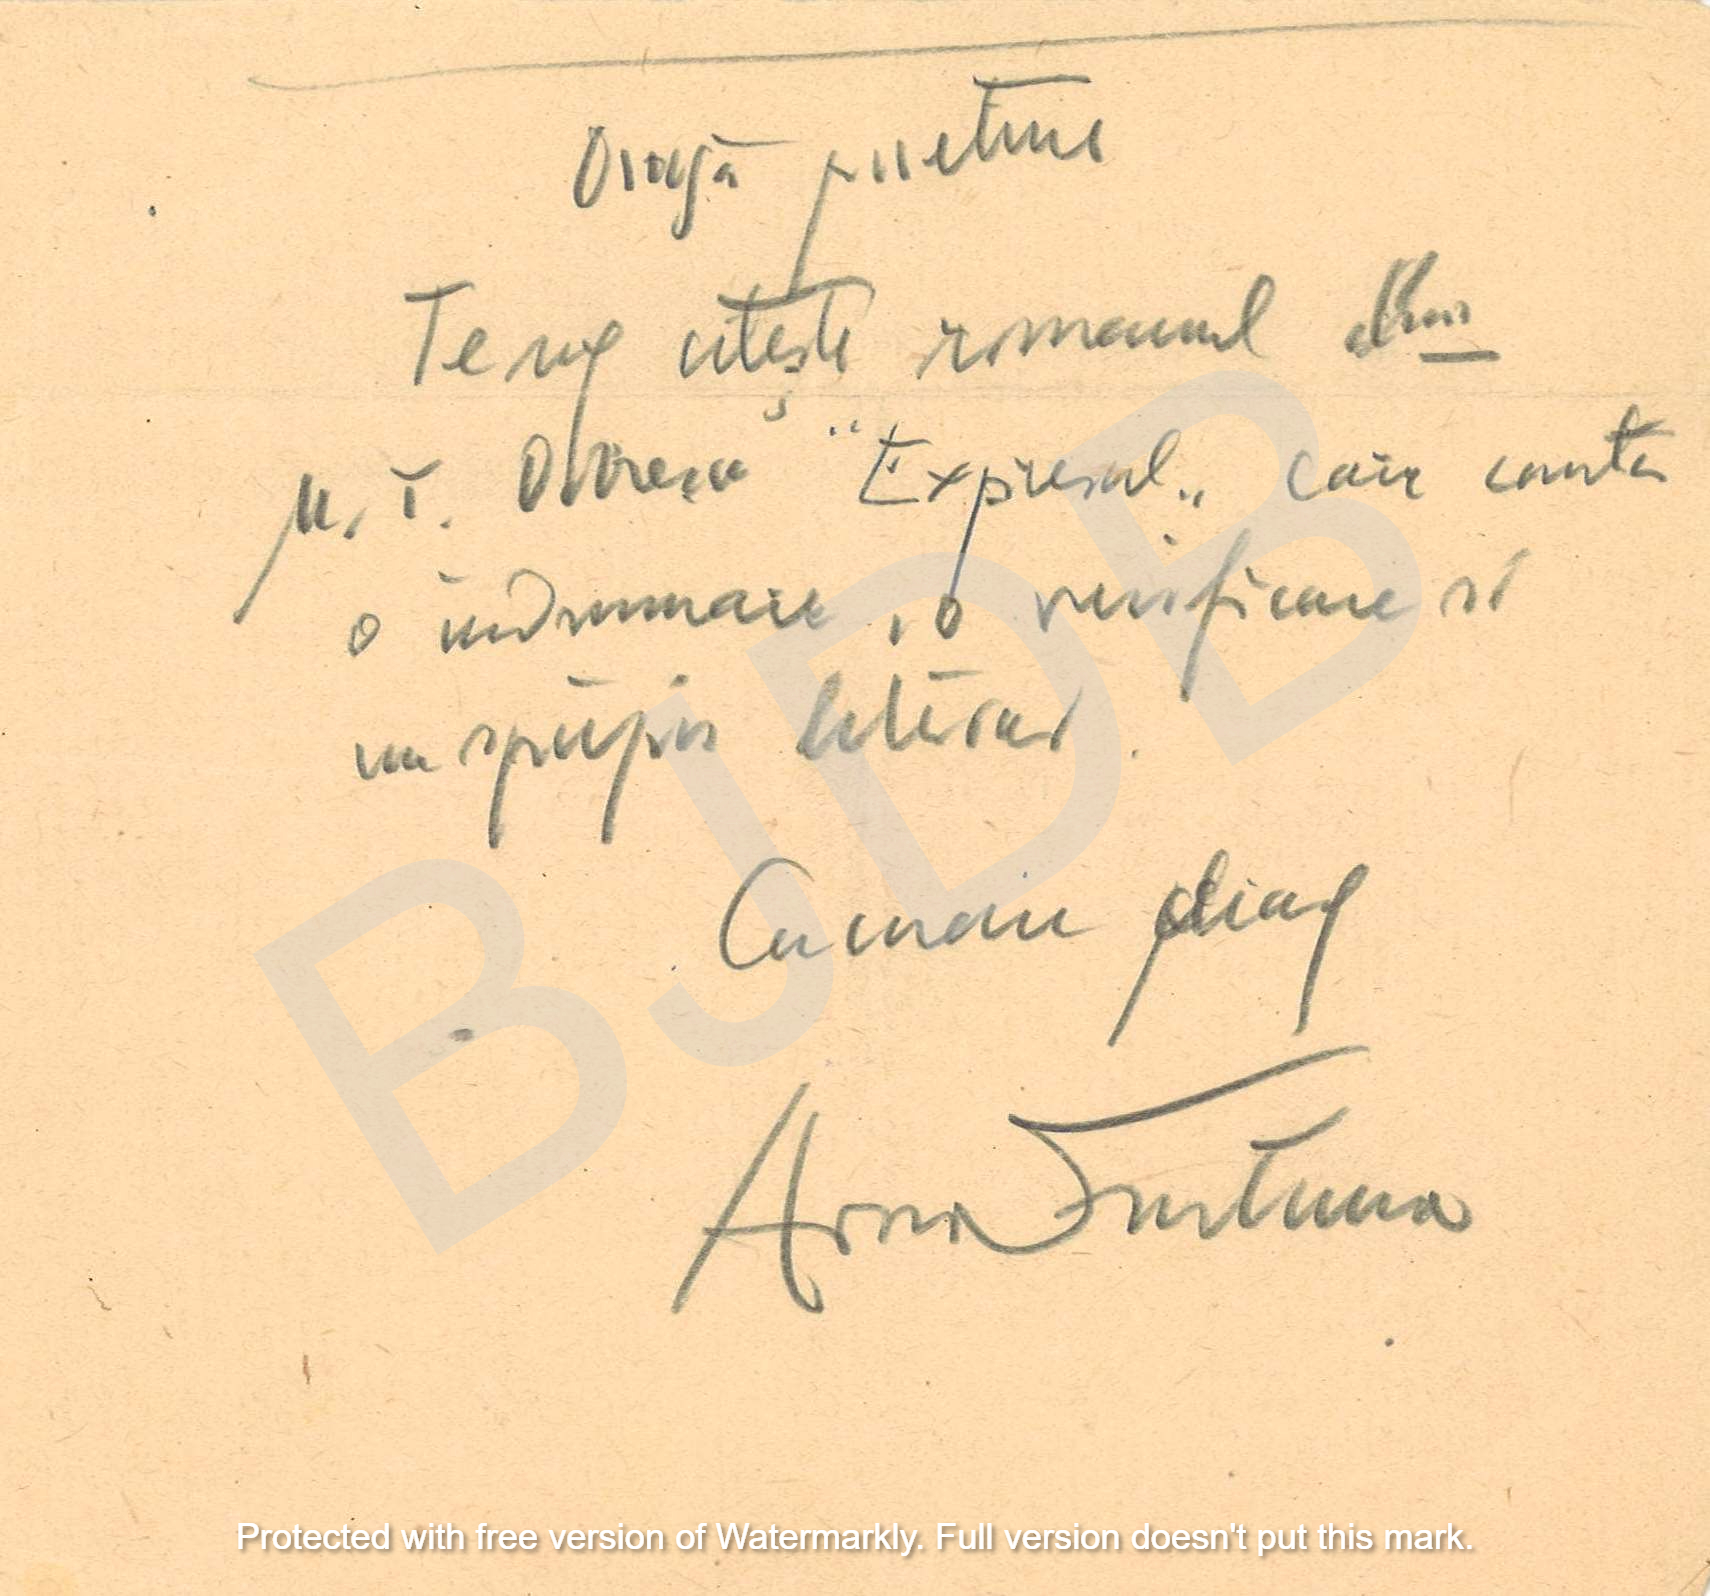 Dragă prietene
Te rog citește romanul dlui
M. T. "Expresul„ care caută
o îndrumare, o verificare și
un sprijin literar.
Cu mare drag
Fortuna
BJDB
Protected with free version of Watermarkly. Full version doesn't put this mark.